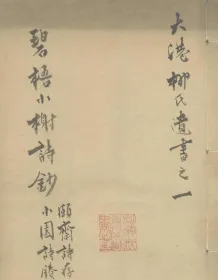 大港柳氏遺書之一
碧梧小榭詩鈔
頤齋詩存
小園詩賸